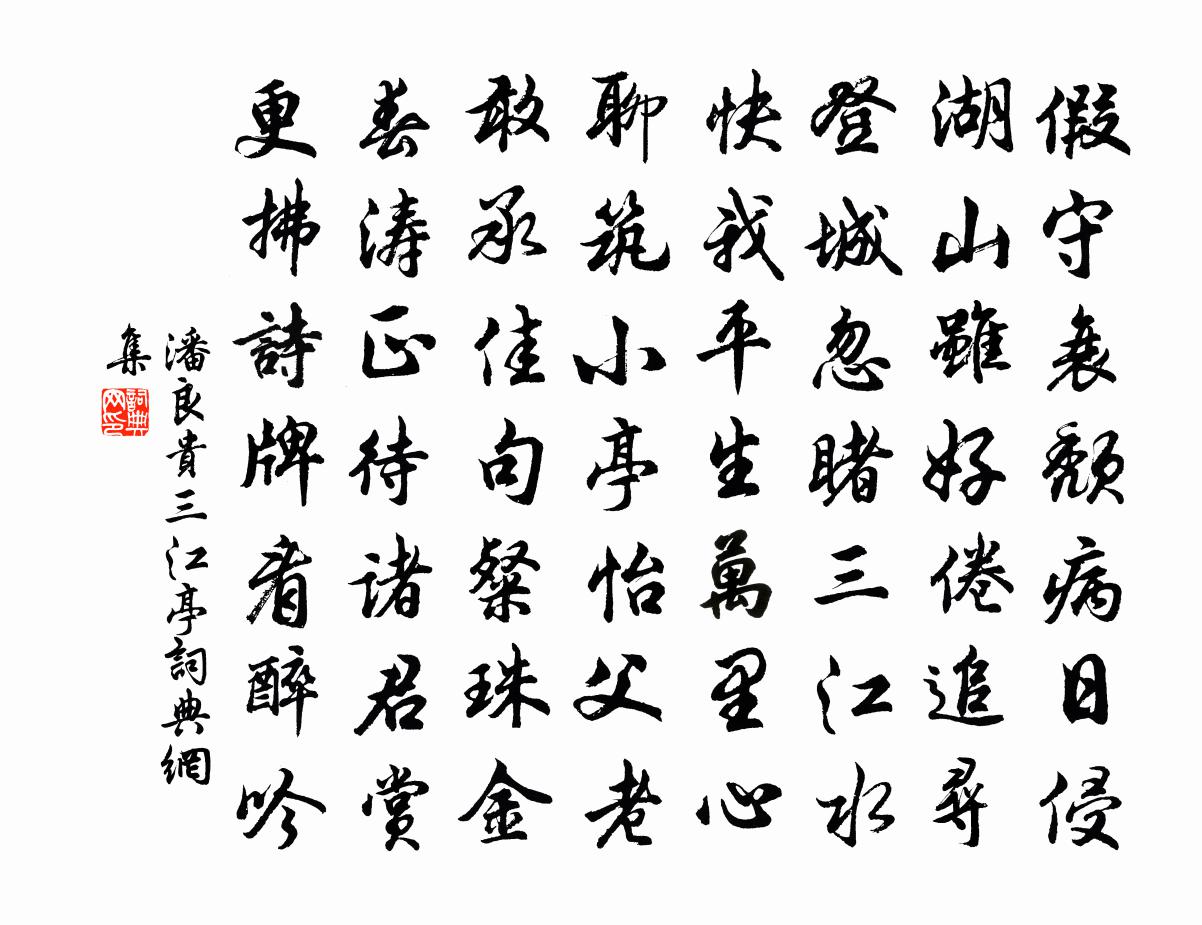 假守衰頹病日侵
湖山雖好倦追尋
登城忽睹三江水
快我平生萬里心
聊筑小亭怡父老
敢承佳句粲珠金
春濤正待諸君賞
更拂詩牌看醉吟
潘良貴三江亭詞典網
集
詞典
网印